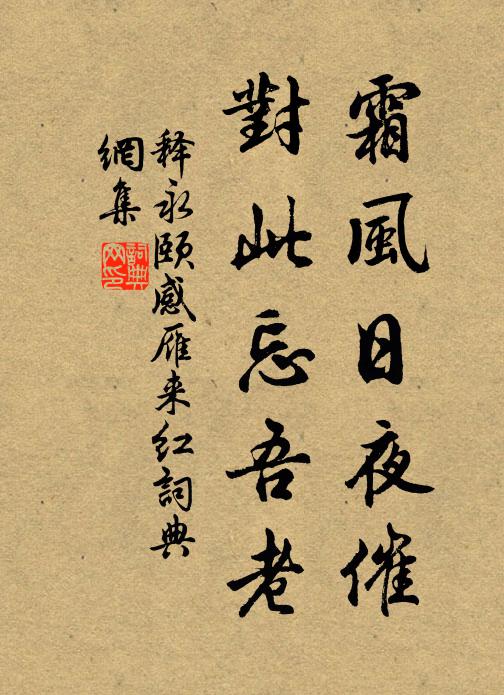 霜風日夜催
對此忘吾老
釋永頤感雁来红詞典
網集
詞典网印